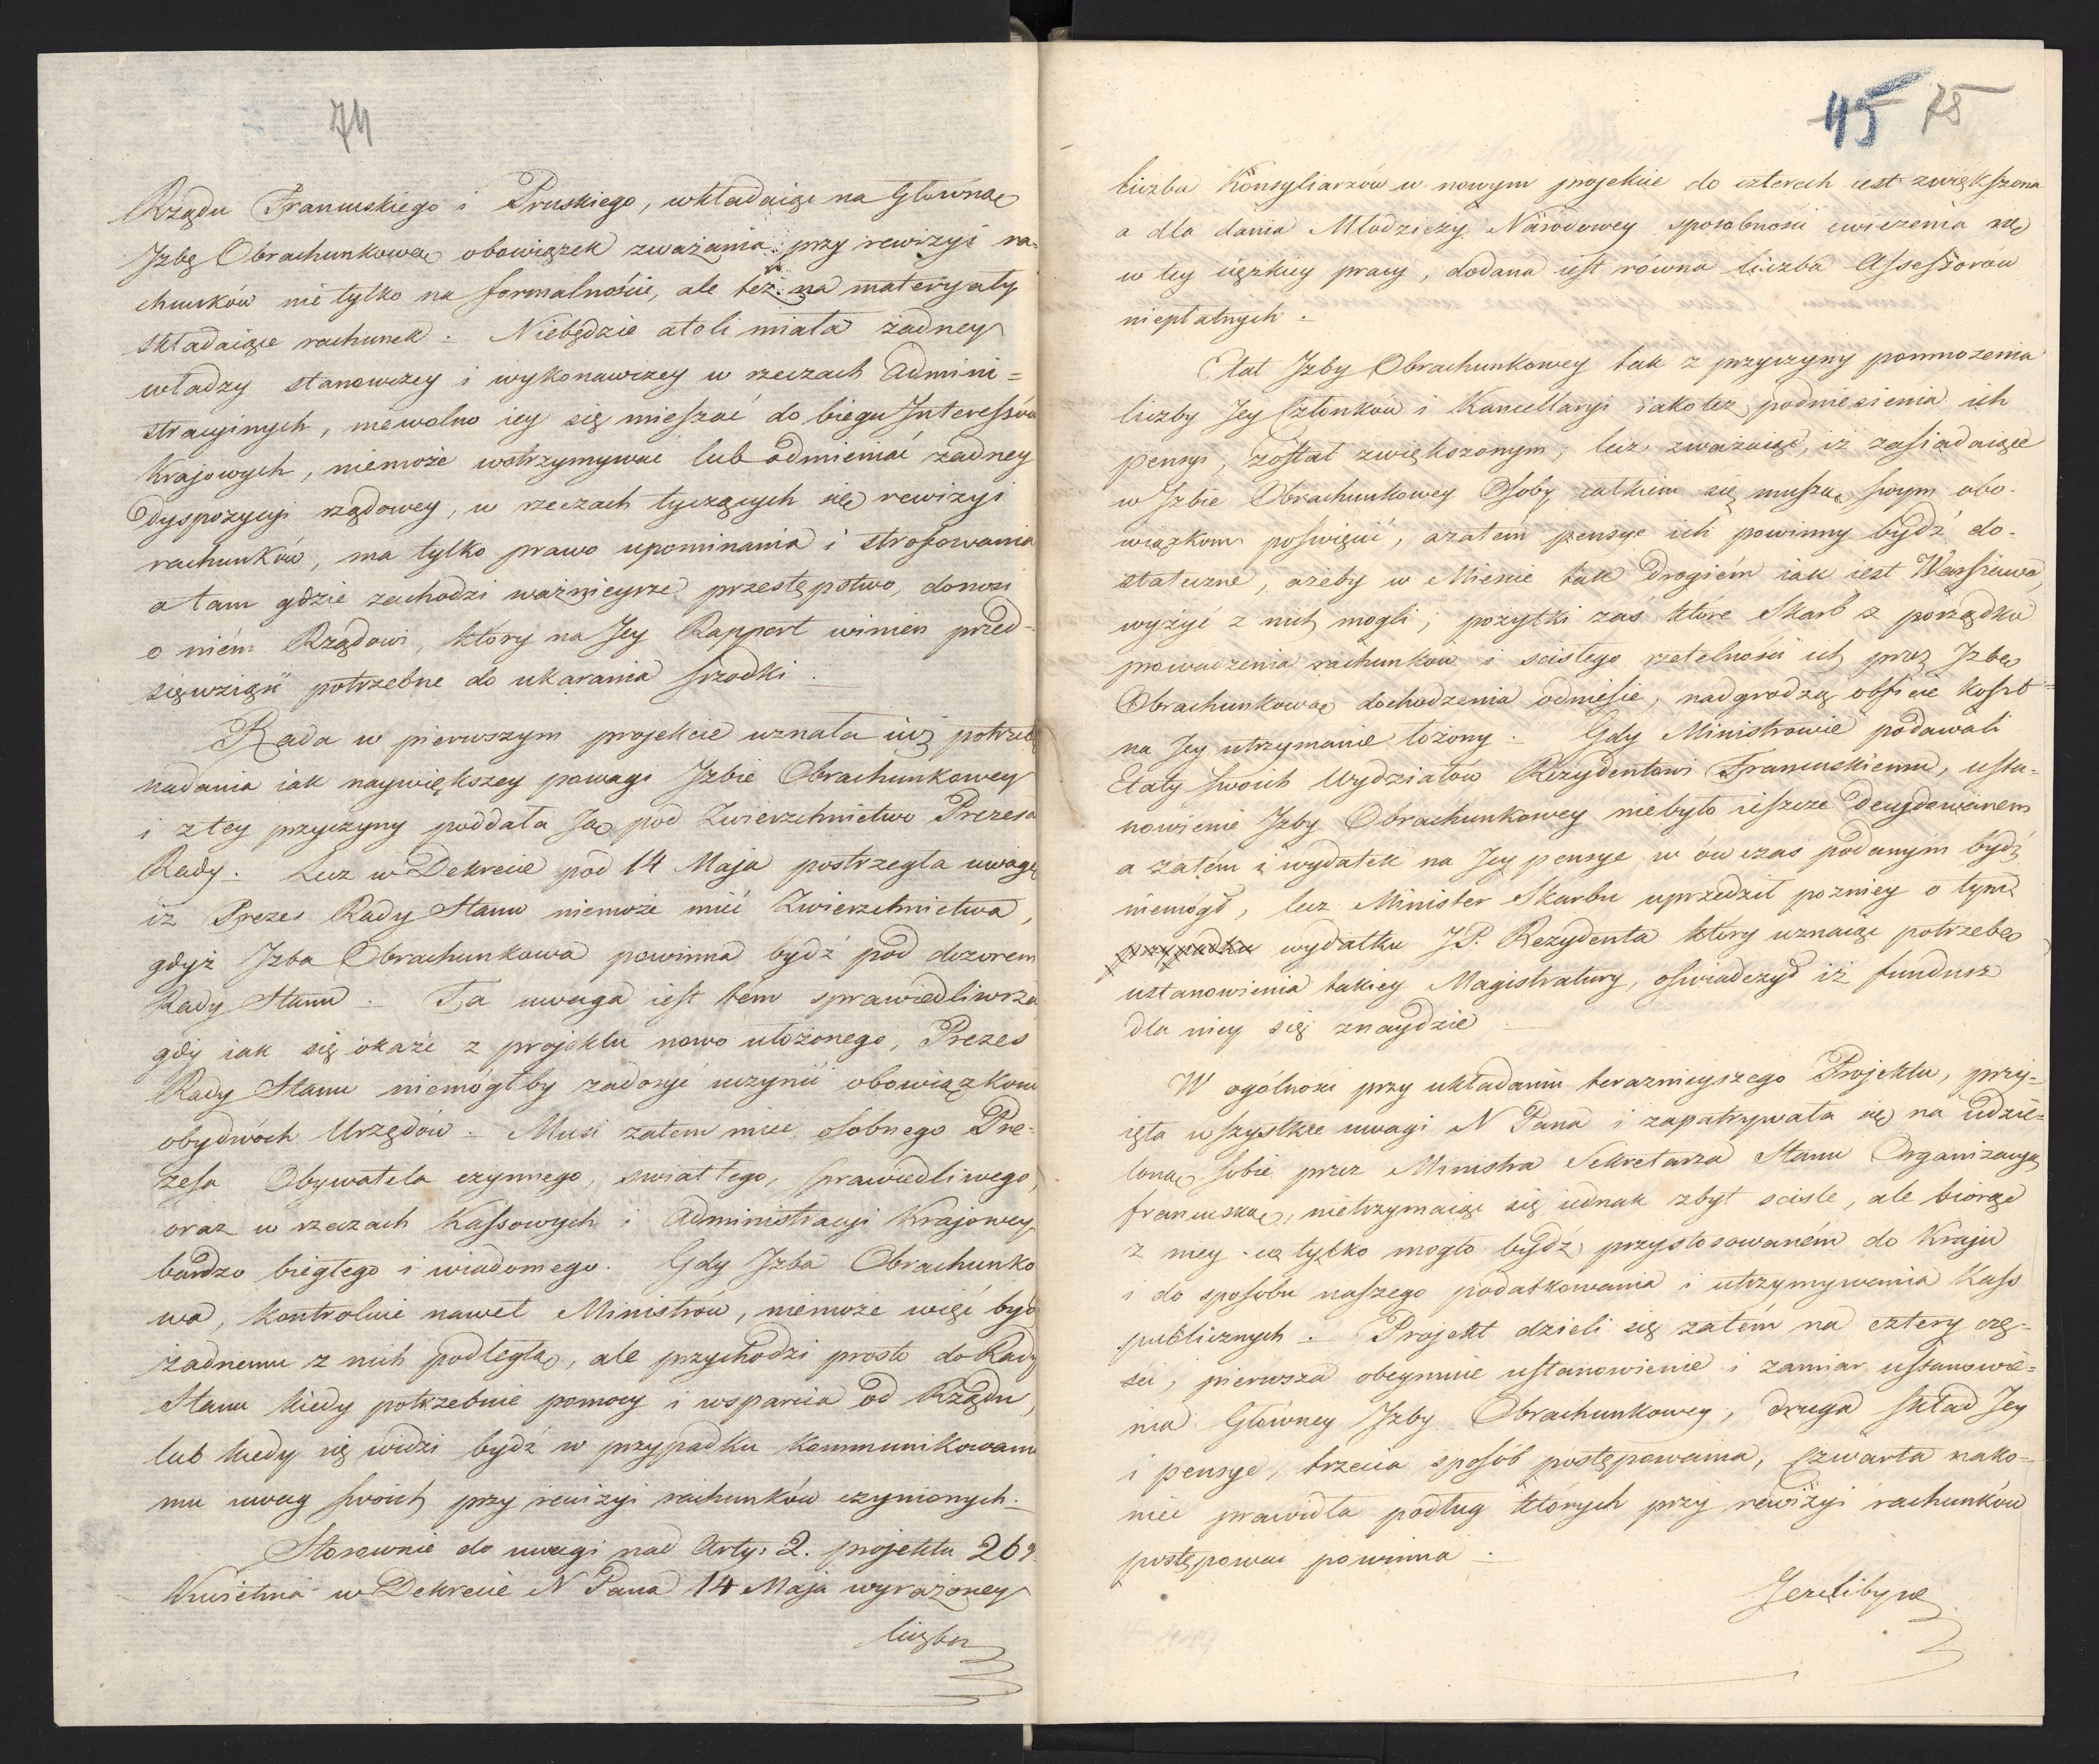 74
Rządu Francuskiego i Pruskiego, wkładaiąc na Główną
Jzbę Obrachunkową obowiązek zważania przy rewizyi ra-
chunków nietylko na formalności, ale też na materyały
składaiące rachunek. Niebędzie atoli miała żadney
władzy stanowczey i wykonawczey w rzeczach Admini=
stracyinych, niewolno iey się mieszać do biegu Jnteressów
krajowych, niemoże wstrzymywać lub odmieniać żadney
dyspozycyi rządowey, w rzeczach tyczących się rewizyi
rachunków, ma tylko prawo upominania i strofowania
a tam gdzie zachodzi ważnieysze przestępstwo, donosi
o niém Rządowi, który na Jey Rapport winien przed-
sięwziąść potrzebne do ukarania srzodki.
Rada w pierwszym projekcie uznała iuż potrzebę
nadania iak naywiększey powagi Jzbie Obrachunkowey
i z tey przyczyny poddała Ją pod Zwierzchnictwo Prezesa
Rady. Lecz w Dekrecie pod 14 Maja postrzegła uwagę
iż Prezes Rady Stanu niemoże mieć Zwierzchnictwa,
gdyż Jzba Obrachunkowa powinna bydź pod dozorem
Rady Stanu. Ta uwaga iest tém sprawiedliwsza
gdy iak się okaże z projektu nowo ułożonego, Prezes
Rady Stanu niemógłby zadosyć uczynić obowiązkom
obydwóch Urzędów. Musi zatem mieć osobnego Pre-
zesa Obywatela czynnego, swiatłego, sprawiedliwego,
oraz w rzeczach Kassowych i Administracyi Krajowey
bardzo biegłego i wiadomego. Gdy Jzba Obrachunko
wa, kontroluie nawet Ministrów, niemoże więc być
żadnemu z nich podległą, ale przychodzi prosto do Rady
Stanu kiedy potrzebuie pomocy i wsparcia od Rządu,
lub kiedy się widzi bydź w przypadku kommunikowania
mu uwag swoich przy rewizyi rachunków czynionych.
Stosownie do uwagi nad Arty. 2. projektu 26
Kwietnia w Dekrecie N Pana 14 Maja wyrażoney
liczba
45 75
liczba Konsyliarzów w nowym projekcie do czterech iest zwiększona
a dla dania Młodzieży Narodowey sposobności cwiczenia się
w tey ciężkiey pracy, dodana iest równa liczba Assessorow
niepłatnych.
Etat Jzby Obrachunkowey tak z przyczyny pomnożenia
liczby Jey Członków i Kancellaryi iakoteż podniesienia ich
pensyi, został zwiększonym; lecz zważaiąc, iż zasiadaiące
w Jzbie Obrachunkowey Osoby całkiem się muszą swym obo-
wiązkom poświęcić, azatém pensye ich powinny bydź do-
stateczne, ażeby w Miescie tak drogiém iak iest Warszawa,
wyżyć z nich mogli; pożytki zaś które Skarb z porządku
prowadzenia rachunków i scisłego rzetelności ich przez Jzbę
Obrachunkową dochodzenia odniesie, nadgrodzą obficie koszt
na Jey utrzymanie łożony. Gdy Ministrowie podawali
Etaty swoich Wydziałów Rezydentowi Francuskiemu, usta-
nowienie Jzby Obrachunkowey niebyło ieszcze decydowanem
a zatém i wydatek na Jey pensye w ów czas podanym bydź
niemógł, lecz Minister Skarbu uprzedził pozniey o tym
przypadku wydatku JP. Rezydenta który uznaiąc potrzebę
ustanowienia takiey Magistratury, oświadczył iż fundusz
dla niey się znaydzie.
W ogólności przy układaniu terazniejszego Projektu, przy-
ięła wszystkie uwagi N Pana i zapatrywała się na udzie-
loną sobie przez Ministra Sekretarza Stanu Organizacyą
francuską, nietrzymaiąc się iednak zbyt scisle, ale biorąc
z niey co tylko mogło bydź przystosowaném do Kraju
i do sposobu naszego podatkowania i utrzymywania Kass
publicznych. Projekt dzieli się zatém na cztery czę-
sci, pierwsza obeymuie ustanowienie i zamiar ustanowie=
nia Główney Jzby Obrachunkowey, druga skład Jey
i pensye, trzecia sposób postępowania, czwarta nako-
niec prawidła podług których przy rewizyi rachunków
postępować powinna.